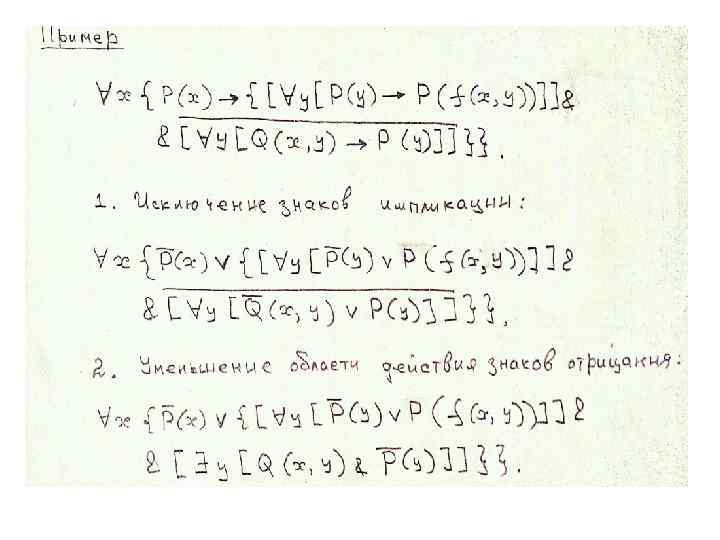 Пример
∀x { P(x) → { [ ∀y [ P(y) → P ( f(x, y)) ] ] &
& [ ∀y [ Q (x, y) → P (y) ] ] } } .
1. Исключение знаков импликации :
∀x { P̅(x) ∨ { [ ∀y [ P̅(y) ∨ P ( f(x, y)) ] ] &
& [ ∀y [ Q̅(x, y) ∨ P(y) ] ] } } ,
2. Уменьшение области действия знаков отрицания :
∀x { P̅(x) ∨ { [ ∀y [ P̅(y) ∨ P ( f(x, y)) ] ] &
& [ ∃y [ Q (x, y) & P̅(y) ] ] } } .